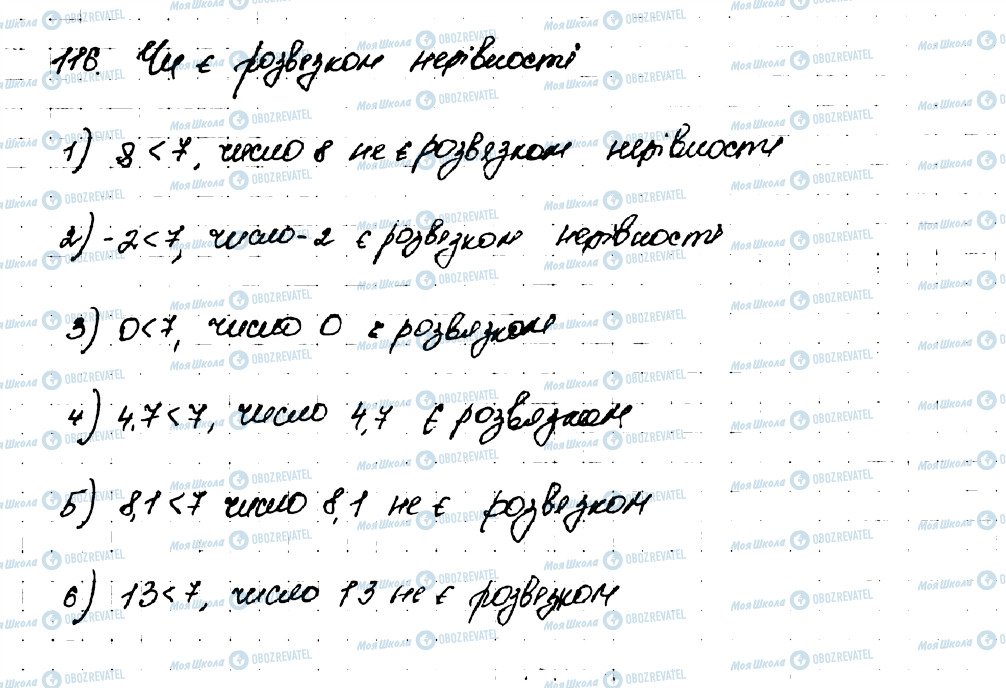 116. Чи є розвязком нерівності
1) 8 < 7, число 8 не є розвязком нерівности
2) -2 < 7, число -2 є розвязком нерівності
3) 0 < 7, число 0 є розвязком
4) 4,7 < 7, число 4,7 є розвязком
5) 8,1 < 7 число 8,1 не є розвязком
6) 13 < 7, число 13 не є розвязком
МояШкола OBOZREVATEL